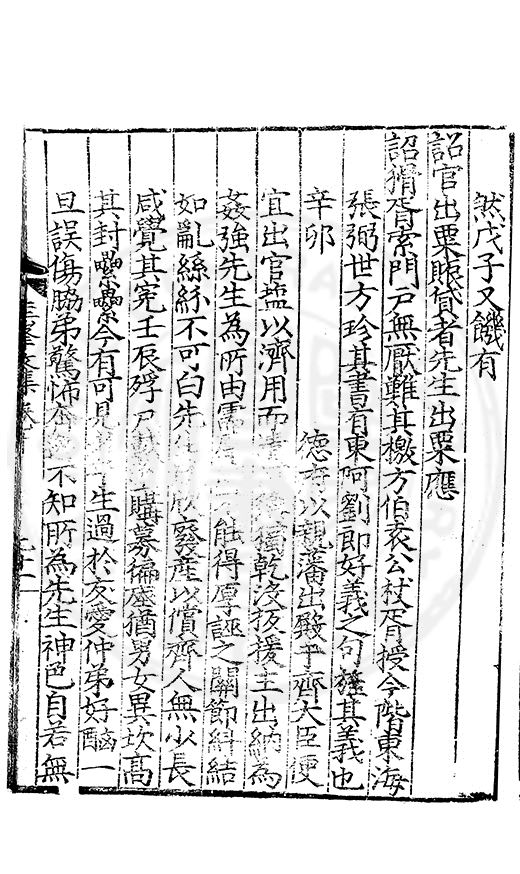 然戊子又饑有
詔官出粟賑貸者先生出粟應
詔猾胥索門戸無厭難其檄方伯袁公杖胥授今階東海
張弼世方珍其書有東阿劉郎好義之句發其義也
辛卯
德府以親藩出殿于齊大臣便
宜出官塩以濟用而 獨乾没扳援主出納為
姦強先生為所由需 能得厚誣之關節糾結
如亂絲紛不可白先生 廢産以償齊人無少長
咸覺其寃壬辰殍尸 購募徧瘞猶男女異坎高
其封纍纍今有可見 生過於友愛仲弟好酗一
旦誤傷脇弟驚怖奔 不知所為先生神色自若無